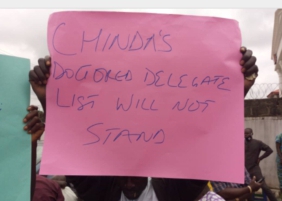 CHINDA'S
DOCTORED DELEGATE
LIST WILL NOT
STAND